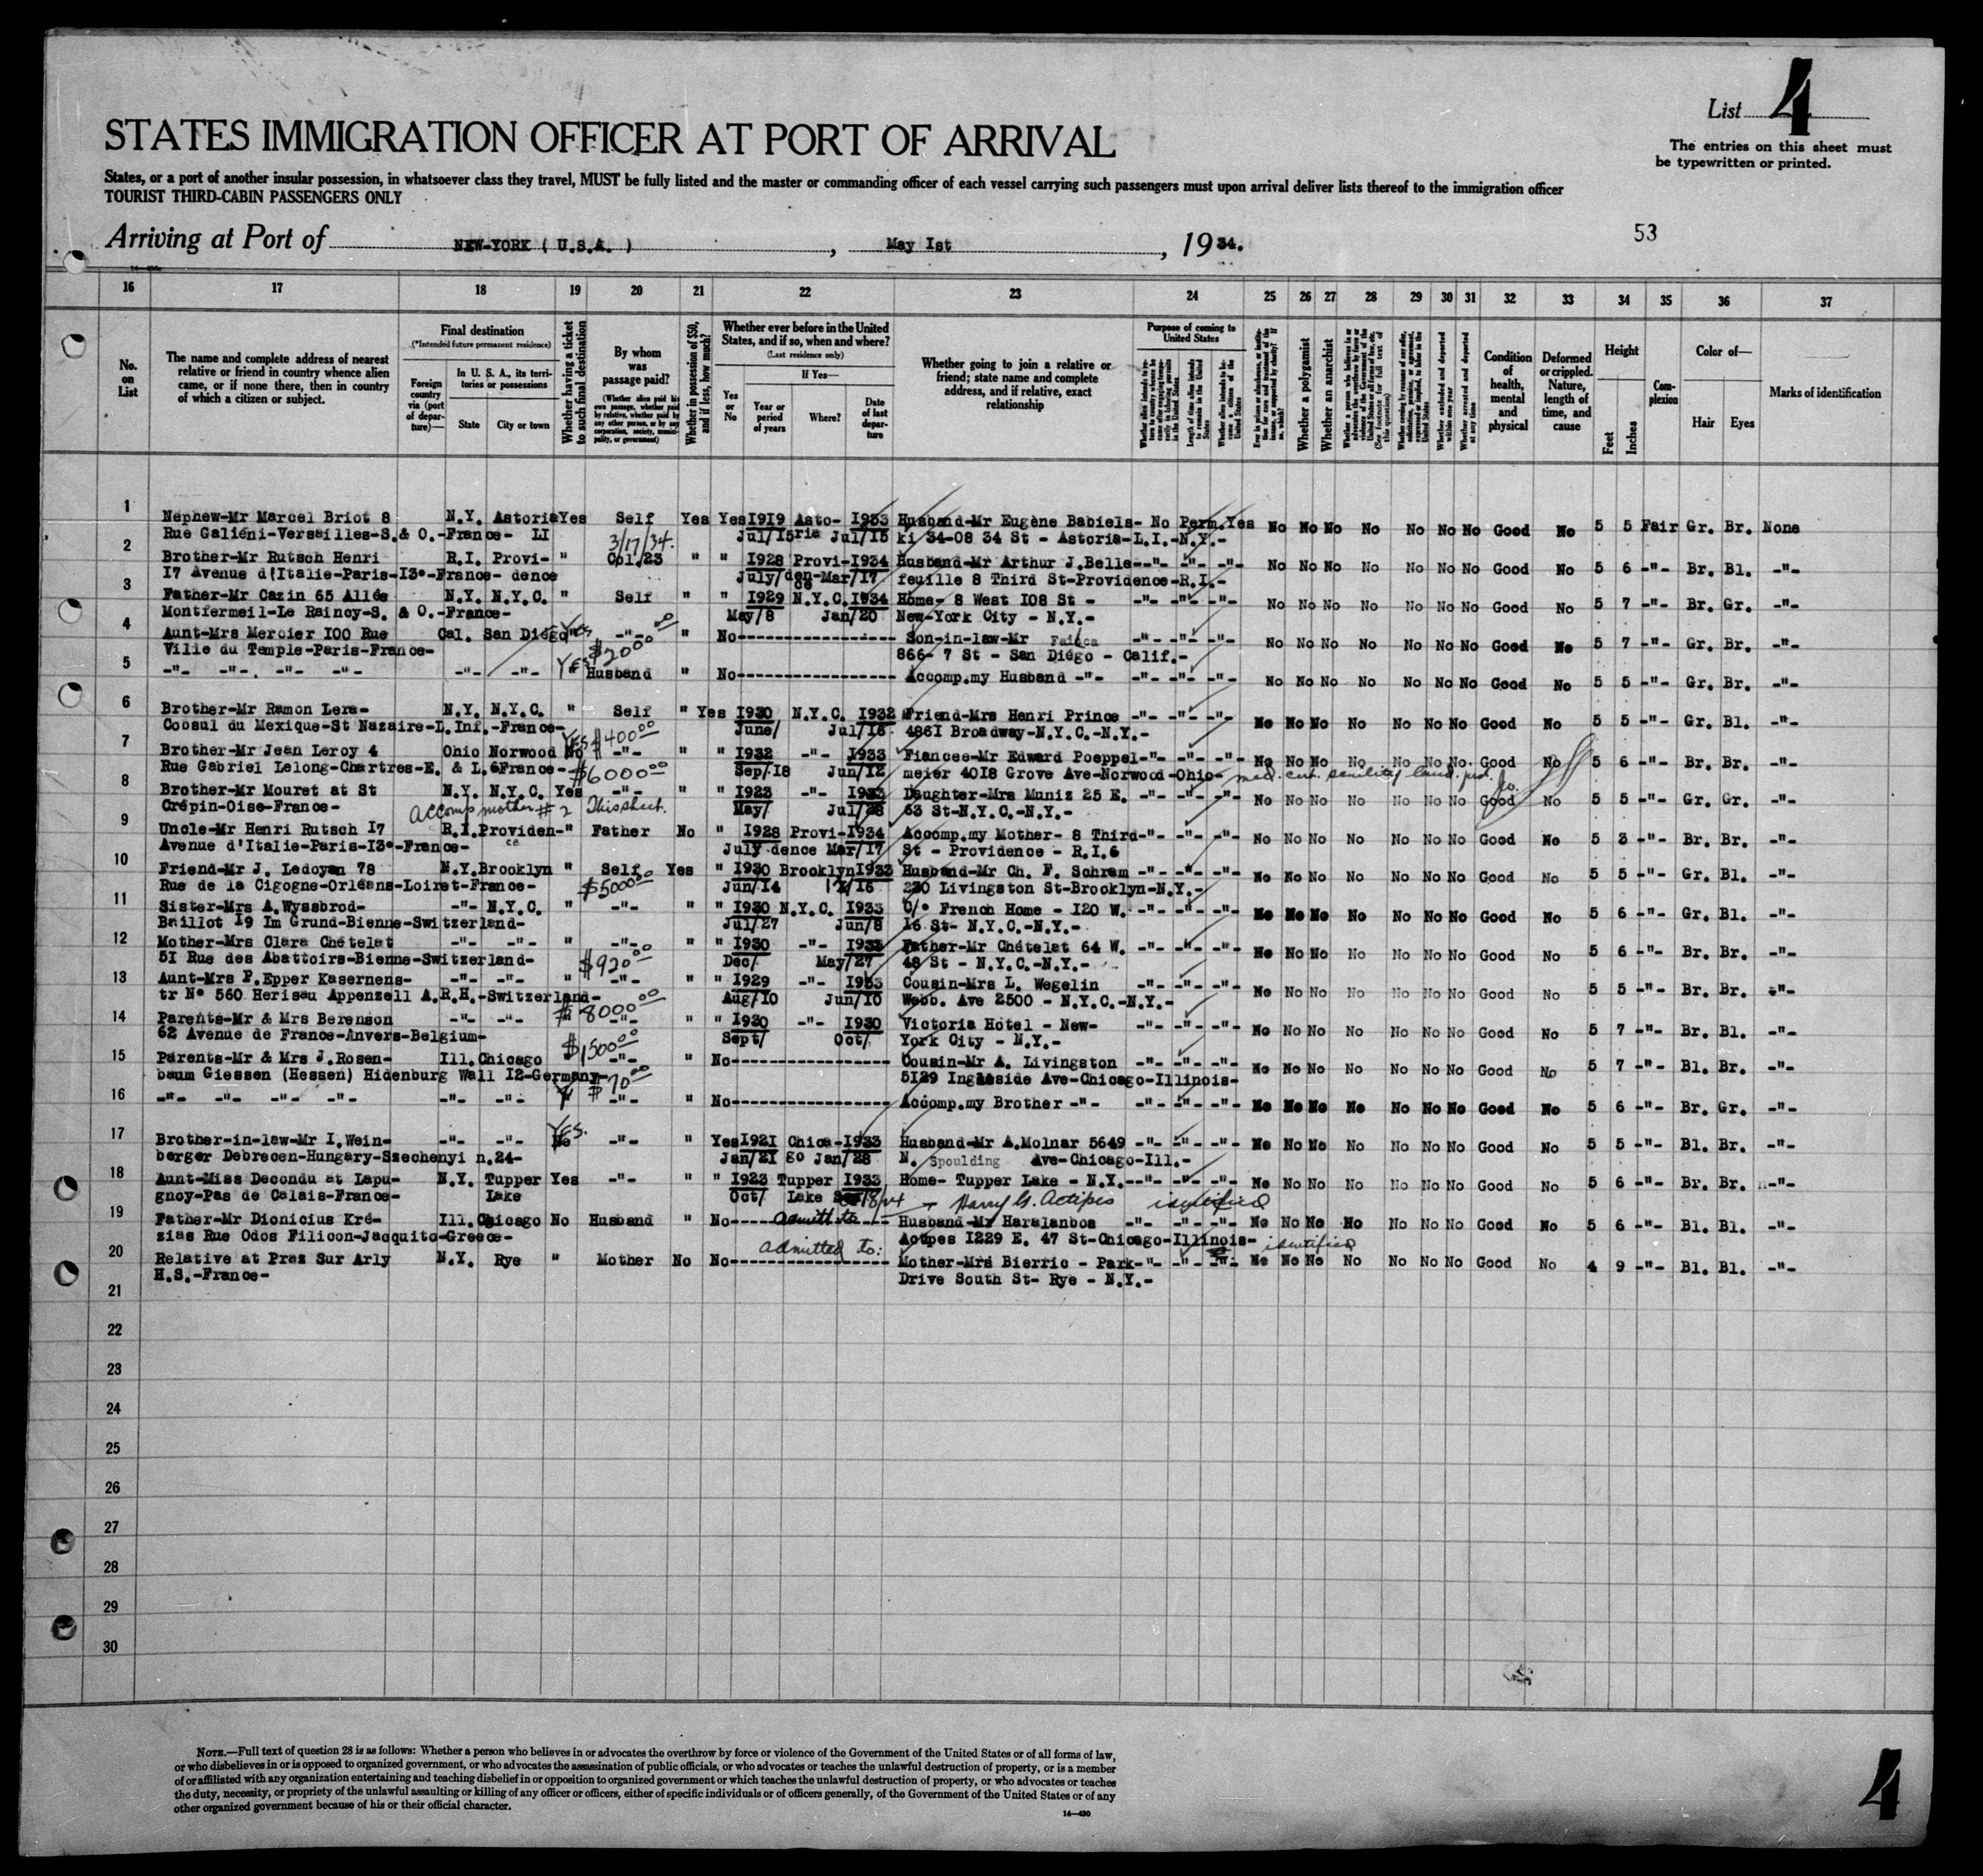 List 4
STATES IMMIGRATION OFFICER AT PORT OF ARRIVAL
The entries on this sheet must
be typewritten or printed.
States, or a port of another insular possession, in whatsoever class they travel, MUST be fully listed and the master or commanding officer of each vessel carrying such passengers must upon arrival deliver lists thereof to the immigration officer
TOURIST THIRD-CABIN PASSENGERS ONLY
Arriving at Port of NEW-YORK ( U.S.A. ) , May Ist , 19 34.
53
16 17 18 19 20 21 22 23 24 25 26 27 28 29 30 31 32 33 34 35 36 37
No. on List
The name and complete address of nearest relative or friend in country whence alien came, or if none there, then in country of which a citizen or subject.
Final destination
(*Intended future permanent residence)
Foreign country via (port of departure)—
In U. S. A., its territories or possessions
State City or town
Whether having a ticket to such final destination
By whom was passage paid?
(Whether alien paid his own passage, whether paid by relative, whether paid by any other person, or by any corporation, society, municipality, or government)
Whether in possession of $50, and if less, how much?
Whether ever before in the United States, and if so, when and where?
(Last residence only)
Yes or No
If Yes—
Year or period of years
Where?
Date of last departure
Whether going to join a relative or friend; state name and complete address, and if relative, exact relationship
Purpose of coming to United States
Length of time alien intends to remain in the United States
Whether a polygamist
Whether an anarchist
Whether arrested and deported at any time
Condition of health, mental and physical
Deformed or crippled. Nature, length of time, and cause
Height
Feet Inches
Complexion
Color of—
Hair Eyes
Marks of identification
1 Nephew-Mr Marcel Briot 8 N.Y. Astoria Yes Self Yes Yes I9I9 Asto- I933 Husband-Mr Eugène Babiels- No Perm. Yes No No No No No No No Good No 5 5 Fair Gr. Br. None
Rue Galiéni-Versailles-S.& O.-France- LI Jul/I5 ria Jul/I5 ki 34-08 34 St - Astoria-L.I.-N.Y.-
3/17/34.
2 Brother-Mr Rutsch Henri R.I. Provi- " " " I928 Provi- I934 Husband-Mr Arthur J.Belle- -"- -"- -"- No No No No No No No Good No 5 6 -"- Br. Bl. -"-
I7 Avenue d'Italie-Paris-I3°-France- dence July/ den- Mar/I7 feuille 8 Third St-Providence-R.I.-
3 Father-Mr Cazin 65 Allée N.Y. N.Y.C. " Self " " I929 N.Y.C. I934 Home- 8 West I08 St - -"- -"- -"- No No No No No No No Good No 5 7 -"- Br. Gr. -"-
Montfermeil-Le Raincy-S. & O.-France- May/8 Jan/20 New-York City - N.Y.-
4 Aunt-Mrs Mercier I00 Rue Cal. San Diégo Yes -"- " No- Son-in-law-Mr -"- -"- -"- No No No No No No No Good No 5 7 -"- Gr. Br. -"-
Ville du Temple-Paris-France- $200 00 866- 7 St - San Diégo - Calif.-
5 -"- -"- -"- -"- -"- -"- Yes Husband " No- Accomp.my Husband -"- -"- -"- -"- No No No No No No No Good No 5 5 -"- Gr. Br. -"-
6 Brother-Mr Ramon Lera- N.Y. N.Y.C. " Self " Yes I930 N.Y.C. I932 Friend-Mrs Henri Prince -"- -"- -"- No No No No No No No Good No 5 5 -"- Gr. Bl. -"-
Cobsul du Mexique-St Nazaire-L.Inf.-France- $400 00 June/ Jul/I6 486I Broadway-N.Y.C.-N.Y.-
7 Brother-Mr Jean Leroy 4 Ohio Norwood No Yes -"- " " I932 -"- I933 Fiancee-Mr Edward Poeppel- -"- -"- -"- No No No No No No No Good No 5 6 -"- Br. Br. -"-
Rue Gabriel Lelong-Chartres-E. & L.6France- $6000 00 Sep/I8 Jun/I2 meier 40I8 Grove Ave-Norwood-Ohio- med. cert. senility
8 Brother-Mr Mouret at St N.Y. N.Y.C. Yes -"- " " I923 -"- I933 Daughter-Mrs Muniz 25 E. -"- -"- -"- No No No No No No No Good No 5 5 -"- Gr. Gr. -"-
Crépin-Oise-France- May/ Jul/28 63 St-N.Y.C.-N.Y.-
Accomp mother #2 This sheet.
9 Uncle-Mr Henri Rutsch I7 R.I. Providen- " Father No " I928 Provi- I934 Accomp.my Mother- 8 Third- -"- -"- -"- No No No No No No No Good No 5 3 -"- Br. Br. -"-
Avenue d'Italie-Paris-I3°-France- ce July dence Mar/I7 St - Providence - R.I.6
10 Friend-Mr J. Ledoyen 78 N.Y. Brooklyn " Self Yes " I930 Brooklyn I933 Husband-Mr Ch. F. Schram -"- -"- -"- No No No No No No No Good No 5 5 -"- Gr. Bl. -"-
Rue de la Cigogne-Orléans-Loiret-France- $5000 00 Jun/I4 230 Livingston St-Brooklyn-N.Y.-
11 Sister-Mrs A.Wyssbrod- -"- N.Y.C. " -"- " " I930 N.Y.C. I933 C/° French Home - I20 W. -"- -"- -"- No No No No No No No Good No 5 6 -"- Gr. Bl. -"-
Baillot I9 Im Grund-Bienne-Switzerland- Jul/27 Jun/8 I6 St- N.Y.C.-N.Y.-
12 Mother-Mrs Clara Chételat -"- -"- " -"- " " I930 -"- I933 Father-Mr Chételat 64 W. -"- -"- -"- No No No No No No No Good No 5 6 -"- Br. Br. -"-
5I Rue des Abattoirs-Bienne-Switzerland- $920 00 Dec/ May/27 48 St - N.Y.C.-N.Y.-
13 Aunt-Mrs P.Epper Kasernens- -"- -"- " -"- " " I929 -"- I933 Cousin-Mrs L. Wegelin -"- -"- -"- No No No No No No No Good No 5 5 -"- Br. Br. -"-
tr N° 560 Herisau Appenzell A.R.H.-Switzerland- $8000 00 Aug/I0 Jun/I0 Webb. Ave 2500 - N.Y.C.-N.Y.-
14 Parents-Mr & Mrs Berenson -"- -"- " -"- " " I930 -"- I930 Victoria Hotel - New- -"- -"- -"- No No No No No No No Good No 5 7 -"- Br. Bl. -"-
62 Avenue de France-Anvers-Belgium- $1500 00 Sept/ Oct/ York City - N.Y.-
15 Parents-Mr & Mrs J.Rosen- Ill. Chicago -"- " No- Cousin-Mr A. Livingston -"- -"- -"- No No No No No No No Good No 5 7 -"- Bl. Br. -"-
baum Giessen (Hessen) Hidenburg Wall I2-Germany- $70 00 5I29 Ingleside Ave-Chicago-Illinois-
16 -"- -"- -"- -"- -"- -"- -"- " No- Accomp.my Brother -"- -"- -"- -"- No No No No No No No Good No 5 6 -"- Br. Gr. -"-
17 Brother-in-law-Mr I.Wein- -"- -"- No Yes. -"- " Yes I92I Chica- I933 Husband-Mr A.Molnar 5649 -"- -"- -"- No No No No No No No Good No 5 5 -"- Bl. Br. -"-
berger Debrecen-Hungary-Szechenyi n.24- Jan/2I go Jan/28 N. Spoulding Ave-Chicago-Ill.-
18 Aunt-Miss Decondu at Lapu- N.Y. Tupper Yes -"- " " I923 Tupper I933 Home- Tupper Lake - N.Y.- -"- -"- -"- No No No No No No No Good No 5 6 -"- Br. Br. -"-
gnoy-Pas de Calais-France- Lake Oct/ Lake Harry G. Actipes identified
19 Father-Mr Dionicius Kré- Ill. Chicago No Husband " No- admitt to Husband-Mr Haralanbos -"- -"- -"- No No No No No No No Good No 5 6 -"- Bl. Bl. -"-
zias Rue Odos Filicon-Jacquito-Greece- Actipes I229 E. 47 St-Chicago-Illinois- identified
admitted to:
20 Relative at Praz Sur Arly N.Y. Rye " Mother No No- Mother-Mrs Bierric - Park- -"- -"- -"- No No No No No No No Good No 4 9 -"- Bl. Bl. -"-
H.S.-France- Drive South St- Rye - N.Y.-
21
22
23
24
25
26
27
28
29
30
NOTE.—Full text of question 28 is as follows: Whether a person who believes in or advocates the overthrow by force or violence of the Government of the United States or of all forms of law,
or who disbelieves in or is opposed to organized government, or who advocates the assassination of public officials, or who advocates or teaches the unlawful destruction of property, or is a member
of or affiliated with any organization entertaining and teaching disbelief in or opposition to organized government or which teaches the unlawful destruction of property, or who advocates or teaches
the duty, necessity, or propriety of the unlawful assaulting or killing of any officer or officers, either of specific individuals or of officers generally, of the Government of the United States or of any
other organized government because of his or their official character.
14—430
4